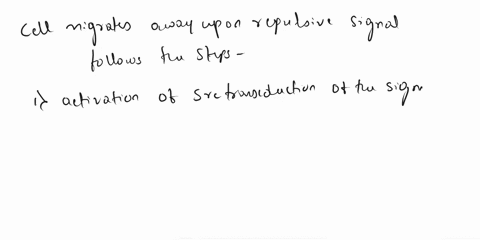 Cell migrates away upon repulsive signal
follows the steps -
1) activation of Src transduction of the sign